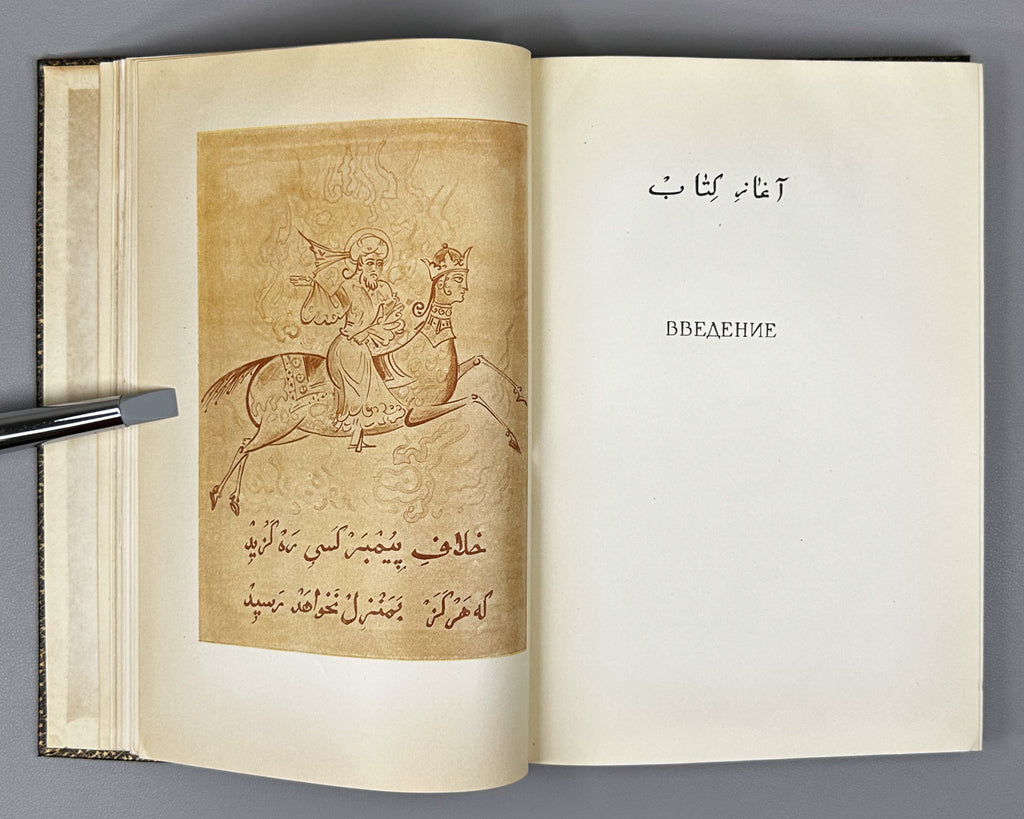 خلافِ پِیَمْبَر کَسی رَه گُزیدْ
که هَرْگِزْ بَمَنْزِلْ نَخْواهَدْ رَسیدْ
آغازِ کِتابْ
ВВЕДЕНИЕ